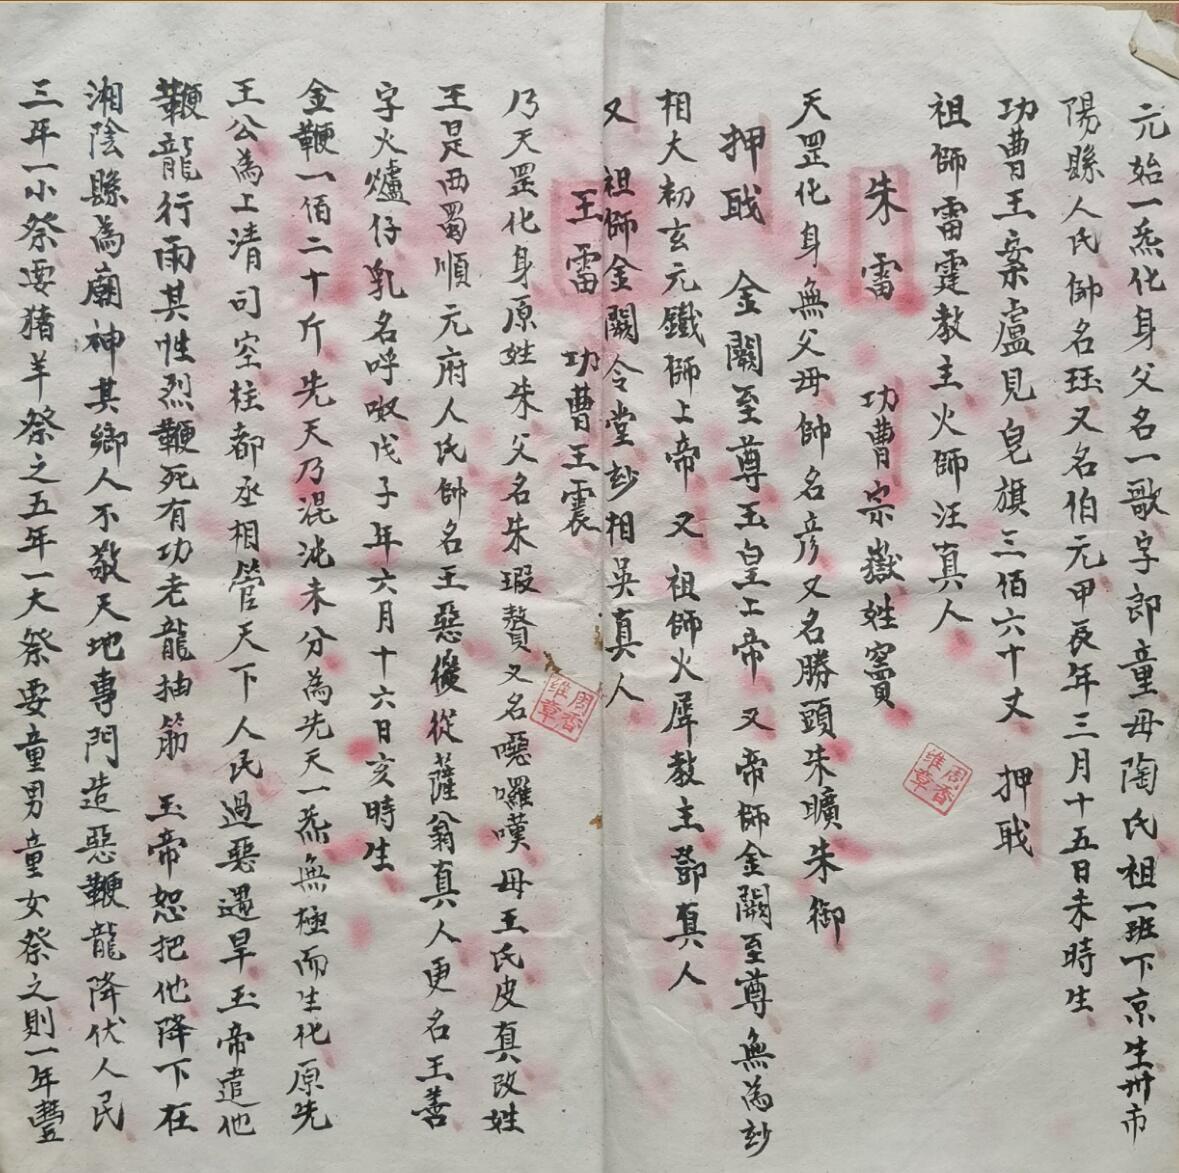 元始一炁化身父名一歌字郎童母陶氏祖一班下京生卅市
陽縣人氏帥名珏又名伯元甲辰年三月十五日未時生
功曹王桒盧見皂旗三佰六十丈 押戢
祖師雷霆教主火師汪真人
朱雷 功曹宗嶽姓竇
天罡化身無父母帥名彦又名勝頭朱曠朱御
押戢 金闕至尊玉皇上帝 又帝師金闕至尊無為玅
相大初玄元鐵師上帝 又 祖師火犀教主鄧真人
又 祖師金闕令堂玅相吳真人
王雷 功曹王震
乃天罡化身原姓朱父名朱瑕贅又名噁囉嘆母王氏皮真改姓
王是西蜀順元府人氏帥名王惡後從薩翁真人更名王善
字火爐仔乳名呼呶戊子年六月十六日亥時生
金鞭一佰二十斤先天乃混沌未分為先天一炁無極而生化原先
王公為上清司空柱都丞相管天下人民過惡遇旱玉帝遣他
鞭龍行雨其性烈鞭死有功老龍抽筋 玉帝怒把他降下在
湘陰縣為廟神其鄉人不敬天地專門造惡鞭龍降伏人民
三年一小祭要猪羊祭之五年一大祭要童男童女祭之則一年豐
周香維章
周香維章